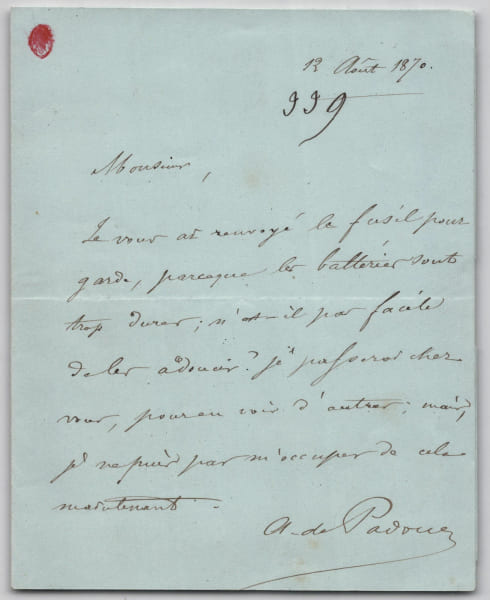 12 Août 1870.
339
Monsieur,
Je vous ai renvoyé le fusil pour
garde, parceque les batteries sont
trop dures; n'est-il pas facile
de les adoucir? je passerai chez
vous, pour en voir d'autres; mais,
je ne puis pas m'occuper de cela
maintenant.
A. de Padoue